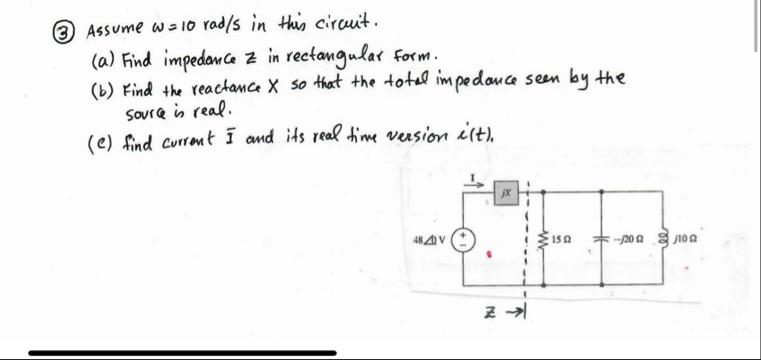 ③ Assume ω = 10 rad/s in this circuit.
(a) Find impedance Z in rectangular form.
(b) Find the reactance X so that the total impedance seen by the
source is real.
(c) find current Ī and its real time version i(t).
I
jX
48∠0 V
+
−
15 Ω
−j20 Ω
j10 Ω
Z →